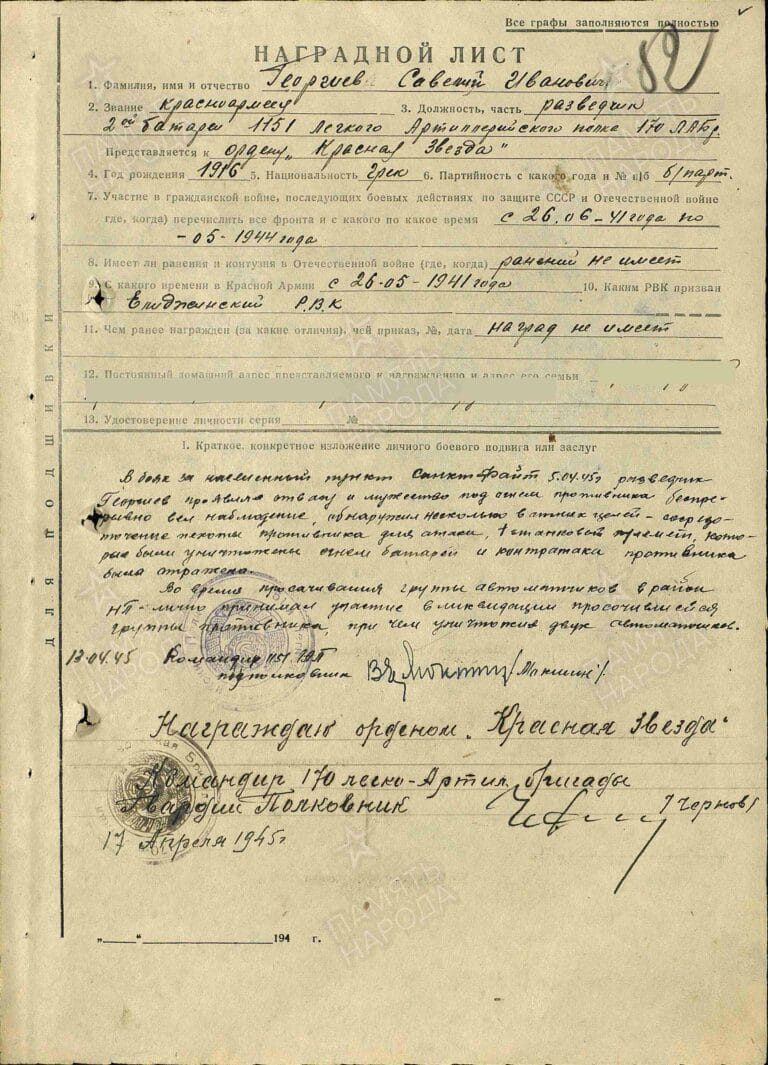 Все графы заполняются полностью
НАГРАДНОЙ ЛИСТ
82
1. Фамилия, имя и отчество Георгиев Савелий Иванович
2. Звание красноармеец 3. Должность, часть разведчик
2ой батареи 1151 Легкого Артиллерийского полка 170 ЛАБр.
Представляется к ордену „Красная Звезда"
4. Год рождения 1916 5. Национальность грек 6. Партийность с какого года и № п/б б/парт.
7. Участие в гражданской войне, последующих боевых действиях по защите СССР и Отечественной войне
где, когда) перечислить все фронта и с какого по какое время с 26.06-41 года по
-05-1944 года
8. Имеет ли ранения и контузия в Отечественной войне (где, когда) ранений не имеет
9. С какого времени в Красной Армии с 26-05-1941 года 10. Каким РВК призван
Р.В.К
11. Чем ранее награжден (за какие отличия), чей приказ, №, дата наград не имеет
12. Постоянный домашний адрес представляемого к награждению и адрес его семьи
13. Удостоверение личности серия №
1. Краткое, конкретное изложение личного боевого подвига или заслуг
В боях за населенный пункт Санкт Файт 5.04.45г разведчик
Георгиев проявляя отвагу и мужество под огнем противника беспре-
рывно вел наблюдение, обнаружил несколько важных целей - сосредо-
точение пехоты противника для атаки, 1 станковый пулемет, кото-
рые были уничтожены огнем батареи и контратака противника
была отражена.
Во время просачивания группы автоматчиков в район
НП - лично принимал участие в ликвидации просочившейся
группы противника, при чем уничтожил двух автоматчиков.
13.04.45 Командир 1151 ЛАП
подполковник /Маклин/
Награждаю орденом „Красная Звезда"
Командир 170 легко-Артил. бригады
Гвардии Полковник /Чернов/
17 Апреля 1945г
„ " 194 г.
ДЛЯ ПОДШИВКИ
ПАМЯТЬ НАРОДА